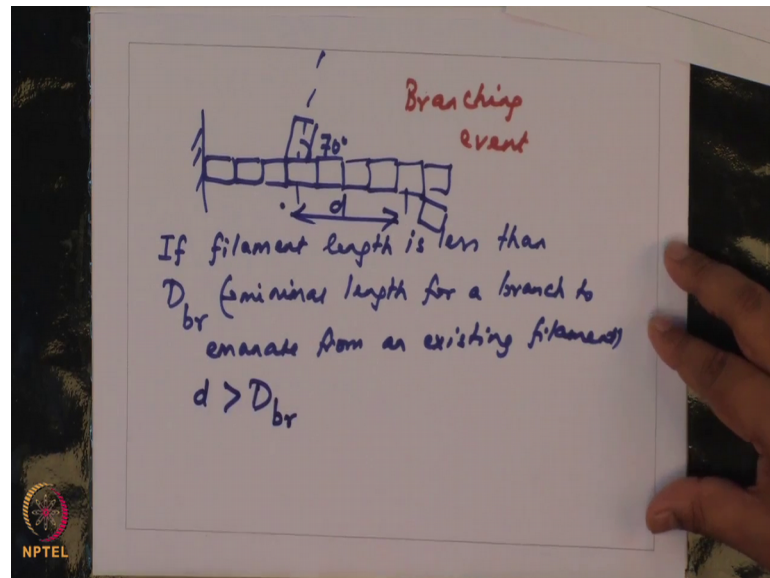 Branching
event
70°
d
If filament length is less than
D_br (→minimal length for a branch to
emanate from an existing filament)
d > D_br
NPTEL